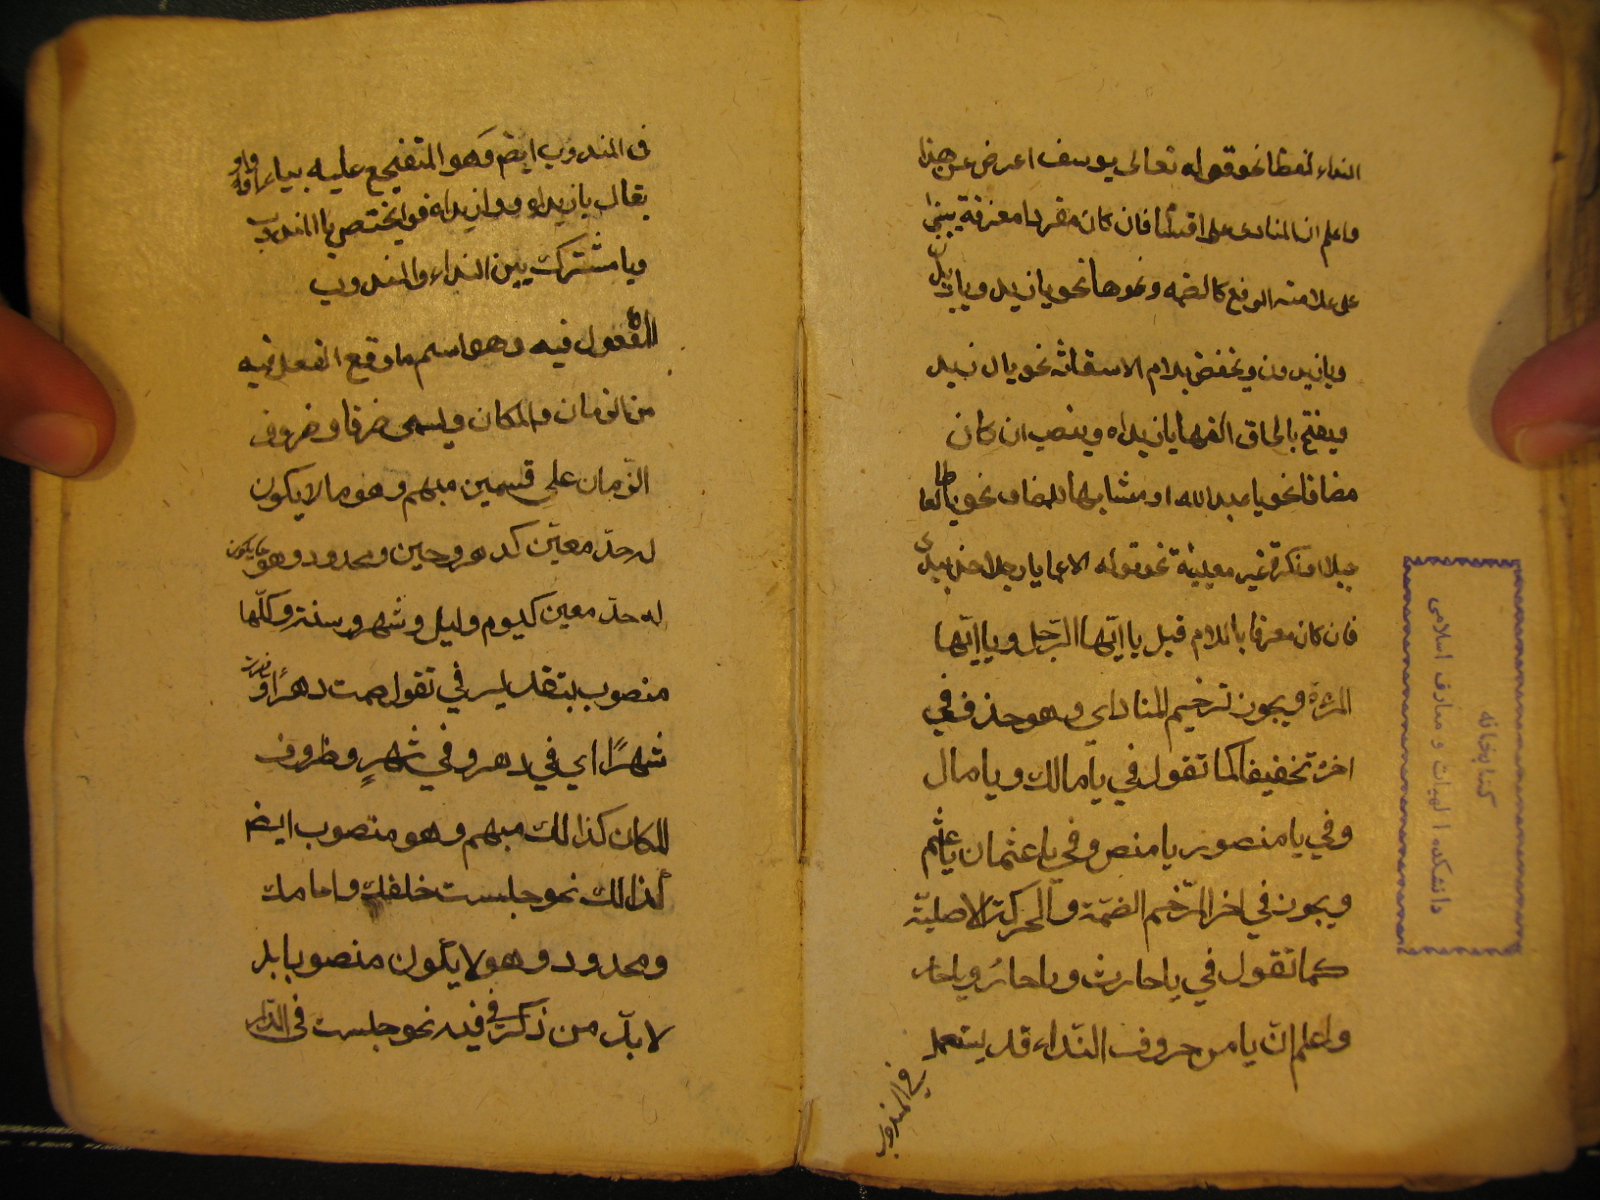 النداء لفظا نحو قوله تعالى يوسف اعرض عن هذا
واعلم ان المنادى على اقسام فان كان مفردا معرفة يبنى
على علامته الرفع كالضمه ونحوها نحو يا زيد ويا زيدان
ويا زيدون ويخفض بلام الاستغاثه نحو يال زيد
ويفتح بالحاق الفها يا زيداه وينصب ان كان
مضافا نحو يا عبد الله او مشابها للمضاف نحو يا طالعا
جبلا او نكرة غير معينة نحو قوله الاعما يا رجلا خذ بيدي
فان كان معرفا باللام قيل يا ايّها الرّجل ويا ايّتها
المرءة ويجوز ترخيم المنادى وهو حذف في
اخره تخفيفا كما تقول في يا مالك ويا مال
وفي يا منصور يا منص وفي يا عثمان يا عثم
ويجوز في اخر المرّخم الضمّة والحركة الاصليّة
كما تقول في يا حارث ويا حارُ ويا حار
واعلم انّ يا من حروف النّداء قد يستعمل
في المندوب
فى المندوب ايضم وهو المتفجع عليه بيا او وا
يقال يا زيداه ووا زيداه فوا يختص باالمندوب
ويا مشترك بين النداء والمندوب
المفعول فيه وهو اسم ما وقع الفعل فيه
من الزمان والمكان ويسمى ضرفا وضروف
الزّمان على قسمين مبهم وهو ما لا يكون
له حدّ معيّن كدهر وحين ومحدود وهو ما يكون
له حدّ معين كيوم وليل وشهر وسنة وكلّها
منصوب بتقدير في تقول صمت دهرًا و
شهرًا اي في دهر وفي شهرٍ وظروف
المكان كذالك مبهم وهو منصوب ايضم
كذالك نحو جلست خلفك وامامك
ومحدود وهو لا يكون منصوبا بل
لا بدّ من ذكر في فيه نحو جلست فى الدّار
كتابخانه
دانشكده الهيات و معارف اسلامى